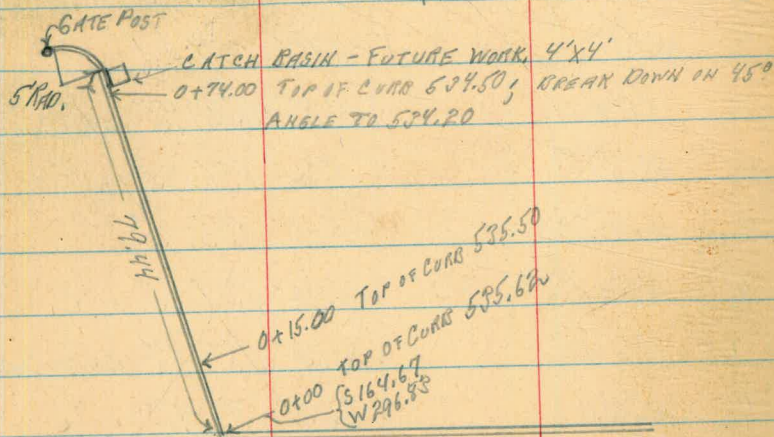 GATE POST
CATCH BASIN - FUTURE WORK, 4'X4'
5' RAD.
0+74.00 TOP OF CURB 534.50; BREAK DOWN ON 45°
ANGLE TO 534.20
79.44
0+15.00 TOP OF CURB 535.50
0+00 TOP OF CURB 535.62
S 164.67
W 296.85